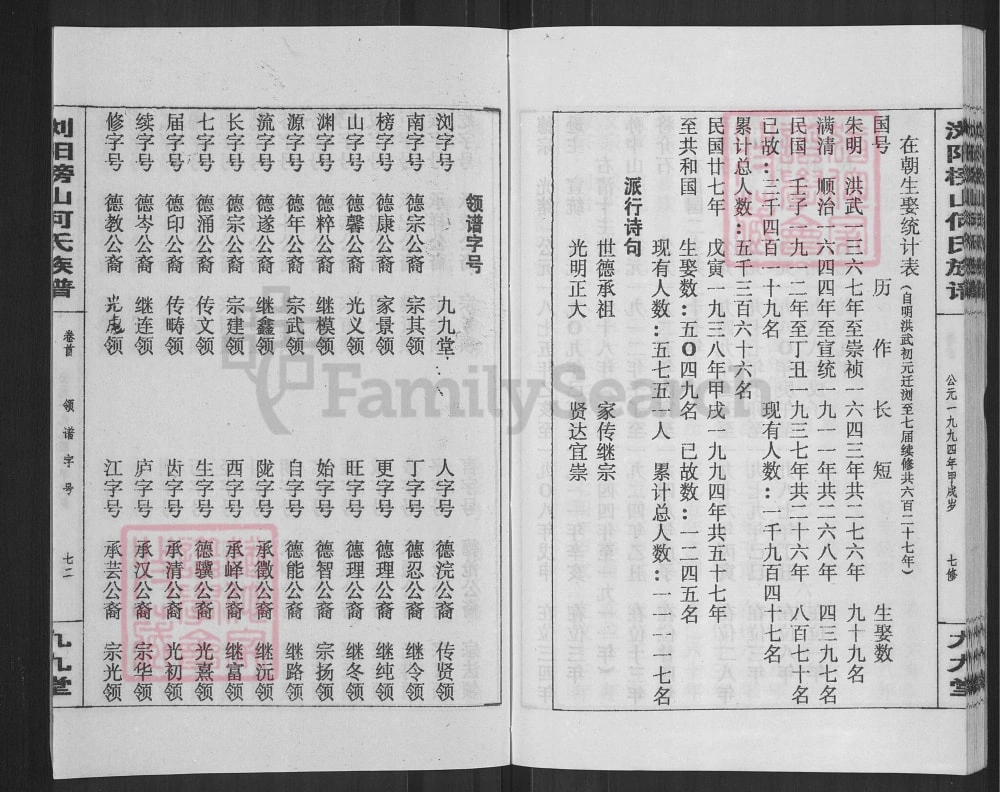 浏阳榜山何氏族谱
公元一九九四年甲戌岁
七修
九九堂
在朝生娶统计表(自明洪武初元迁浏至七届续修共六百二十七年)
国号 历作长短 生娶数
朱明 洪武一三六七年至崇祯一六四三年共二七六年 九十九名
满清 顺治一六四四年至宣统一九一一年共二六八年 四三九七名
民国 壬子一九一二年至丁丑一九三七年共二十六年 八百七十名
已故:三千四百一十九名 现有人数:一千九百四十七名
累计总人数:五千三百六十六名
民国廿七年 戊寅一九三八年甲戌一九九四年共五十七年
至共和国 生娶数:五〇四九名 已故数:一二四五名
现有人数:五七五一人 累计总人数:一一一一七名
派行诗句
世德承祖 家传继宗
光明正大 贤达宜崇
领谱字号
浏字号 九九堂
人字号 德浣公裔 传贤领
南字号 德宗公裔 宗其领
丁字号 德忍公裔 继令领
榜字号 德康公裔 家景领
更字号 德理公裔 继纯领
山字号 德馨公裔 光义领
旺字号 德理公裔 继冬领
渊字号 德粹公裔 继模领
始字号 德智公裔 宗扬领
源字号 德年公裔 宗武领
自字号 德能公裔 继路领
流字号 德遂公裔 继鑫领
陇字号 承徵公裔 继沅领
长字号 德宗公裔 宗建领
西字号 承峄公裔 继富领
七字号 德涌公裔 传文领
生字号 德骥公裔 光熹领
届字号 德印公裔 传畴领
齿字号 承清公裔 光初领
续字号 德岑公裔 继连领
庐字号 承汉公裔 宗华领
修字号 德教公裔 光彪领
江字号 承芸公裔 宗光领
浏阳榜山何氏族谱
卷首
领谱字号
七二
九九堂
FamilySearch